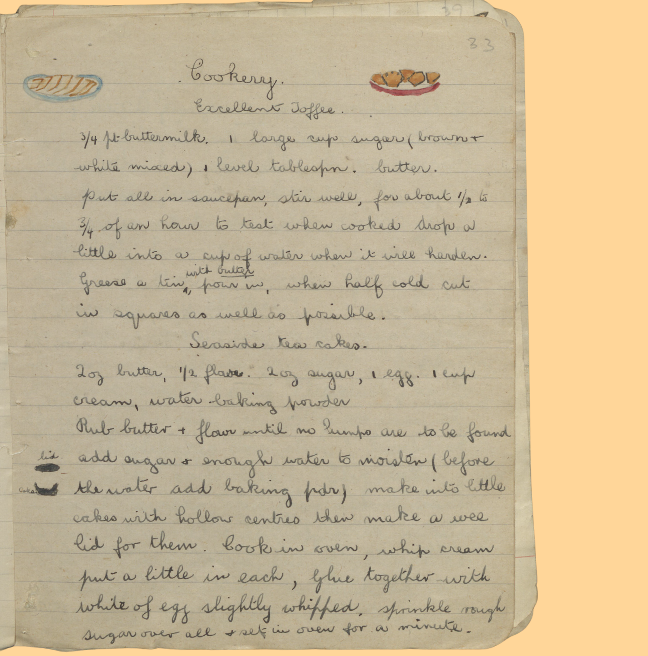 33
Cookery.
Excellent Toffee.
3/4 pt buttermilk. 1 large cup sugar (brown +
white mixed) 1 level tablespn. butter.
Put all in saucepan, stir well, for about 1/2 to
3/4 of an hour to test when cooked drop a
little into a cup of water when it will harden.
Grease a tin with butter, pour in, when half cold cut
in squares as well as possible.
Seaside tea cakes.
2oz butter, 1/2 flour. 2oz sugar, 1 egg. 1 cup
cream, water baking powder
Rub butter + flour until no lumps are to be found
lid
add sugar & enough water to moisten (before
the water add baking pdr) make into little
cakes with hollow centres then make a wee
lid for them. Cook in oven, whip cream
put a little in each, glue together with
white of egg slightly whipped, sprinkle rough
sugar over all & set in oven for a minute.